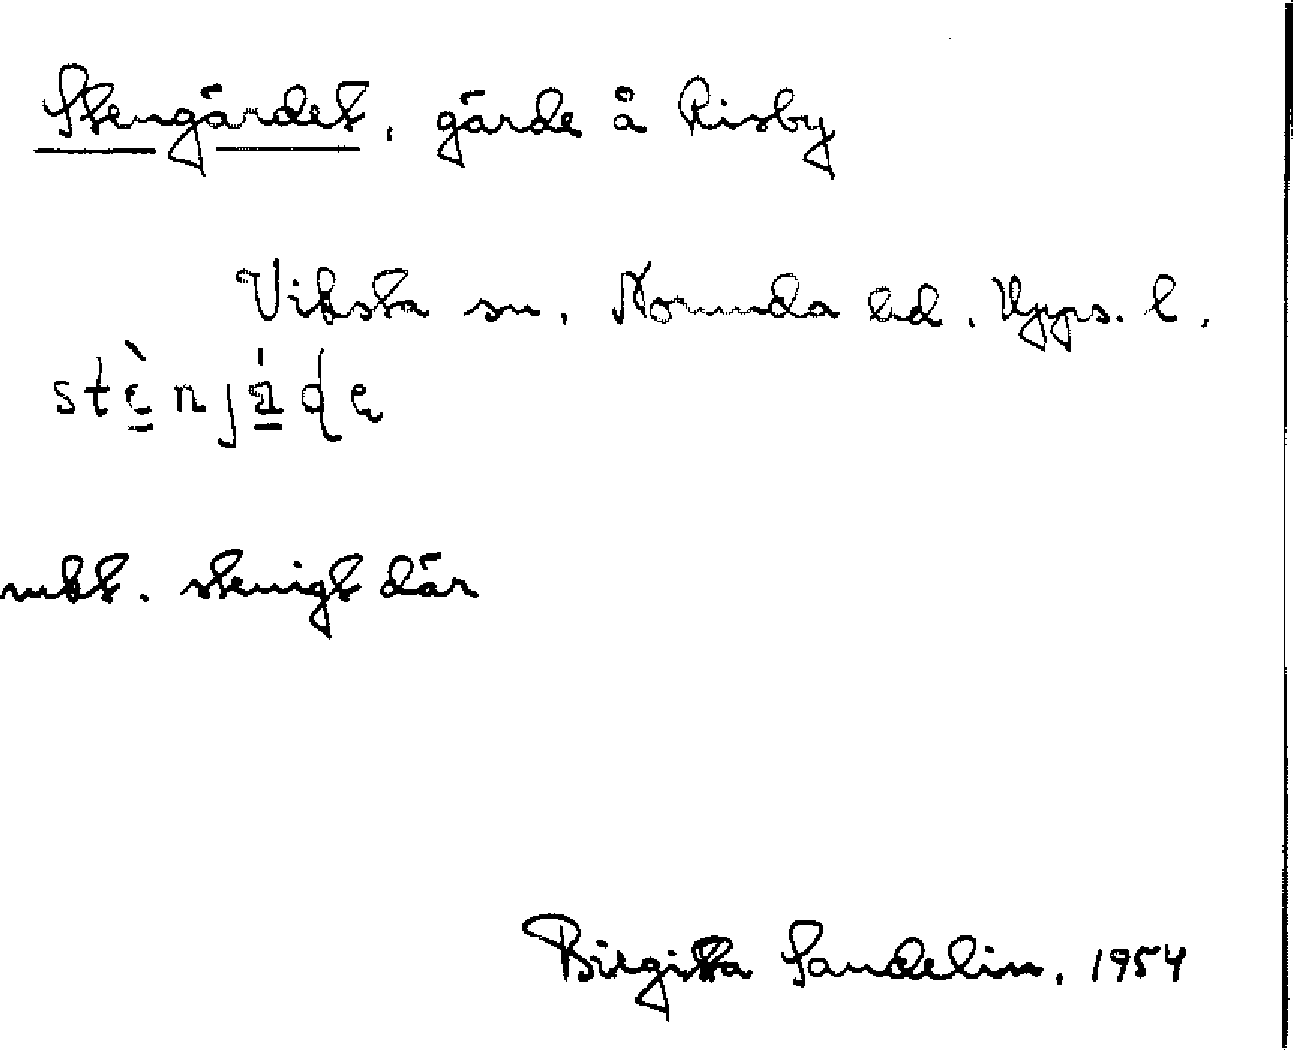 Stengärdet, gärde å Risby
Viksta sn, Norunda hd, Upps. l.
stè̠njä̠́ḍę
mkt. stenigt där
Birgitta Sandelin, 1954